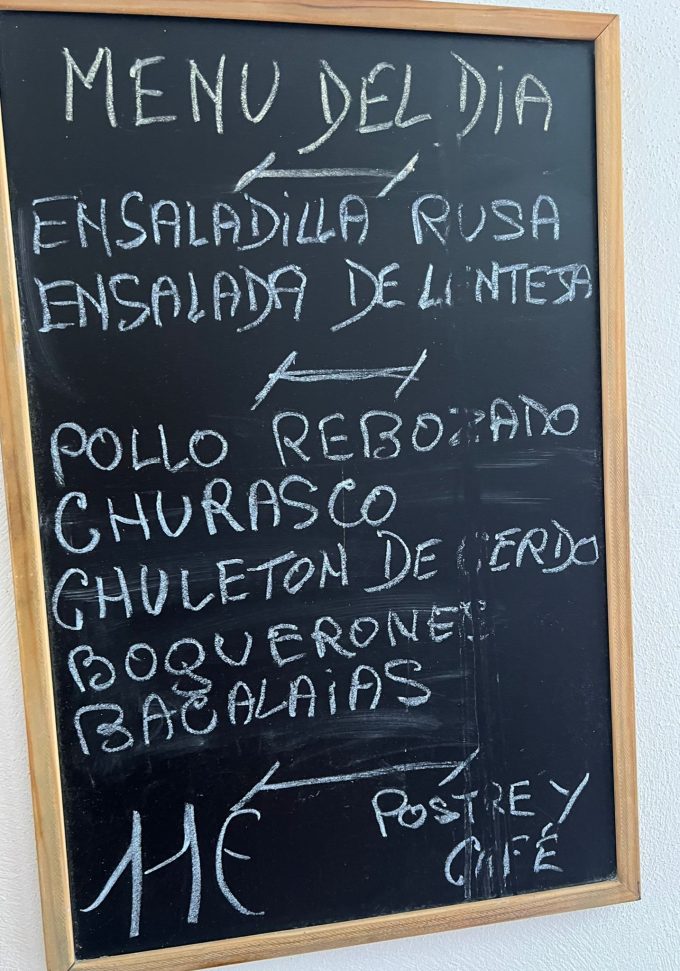 MENU DEL DiA
ENSALADiLLA RUSA
ENSALADA DE LENTEJA
POLLO REBOZADO
CHURASCO
CHULETON DE CERDO
BOQUERONES
BACALAiAS
11€
POSTRE Y
CAFÉ